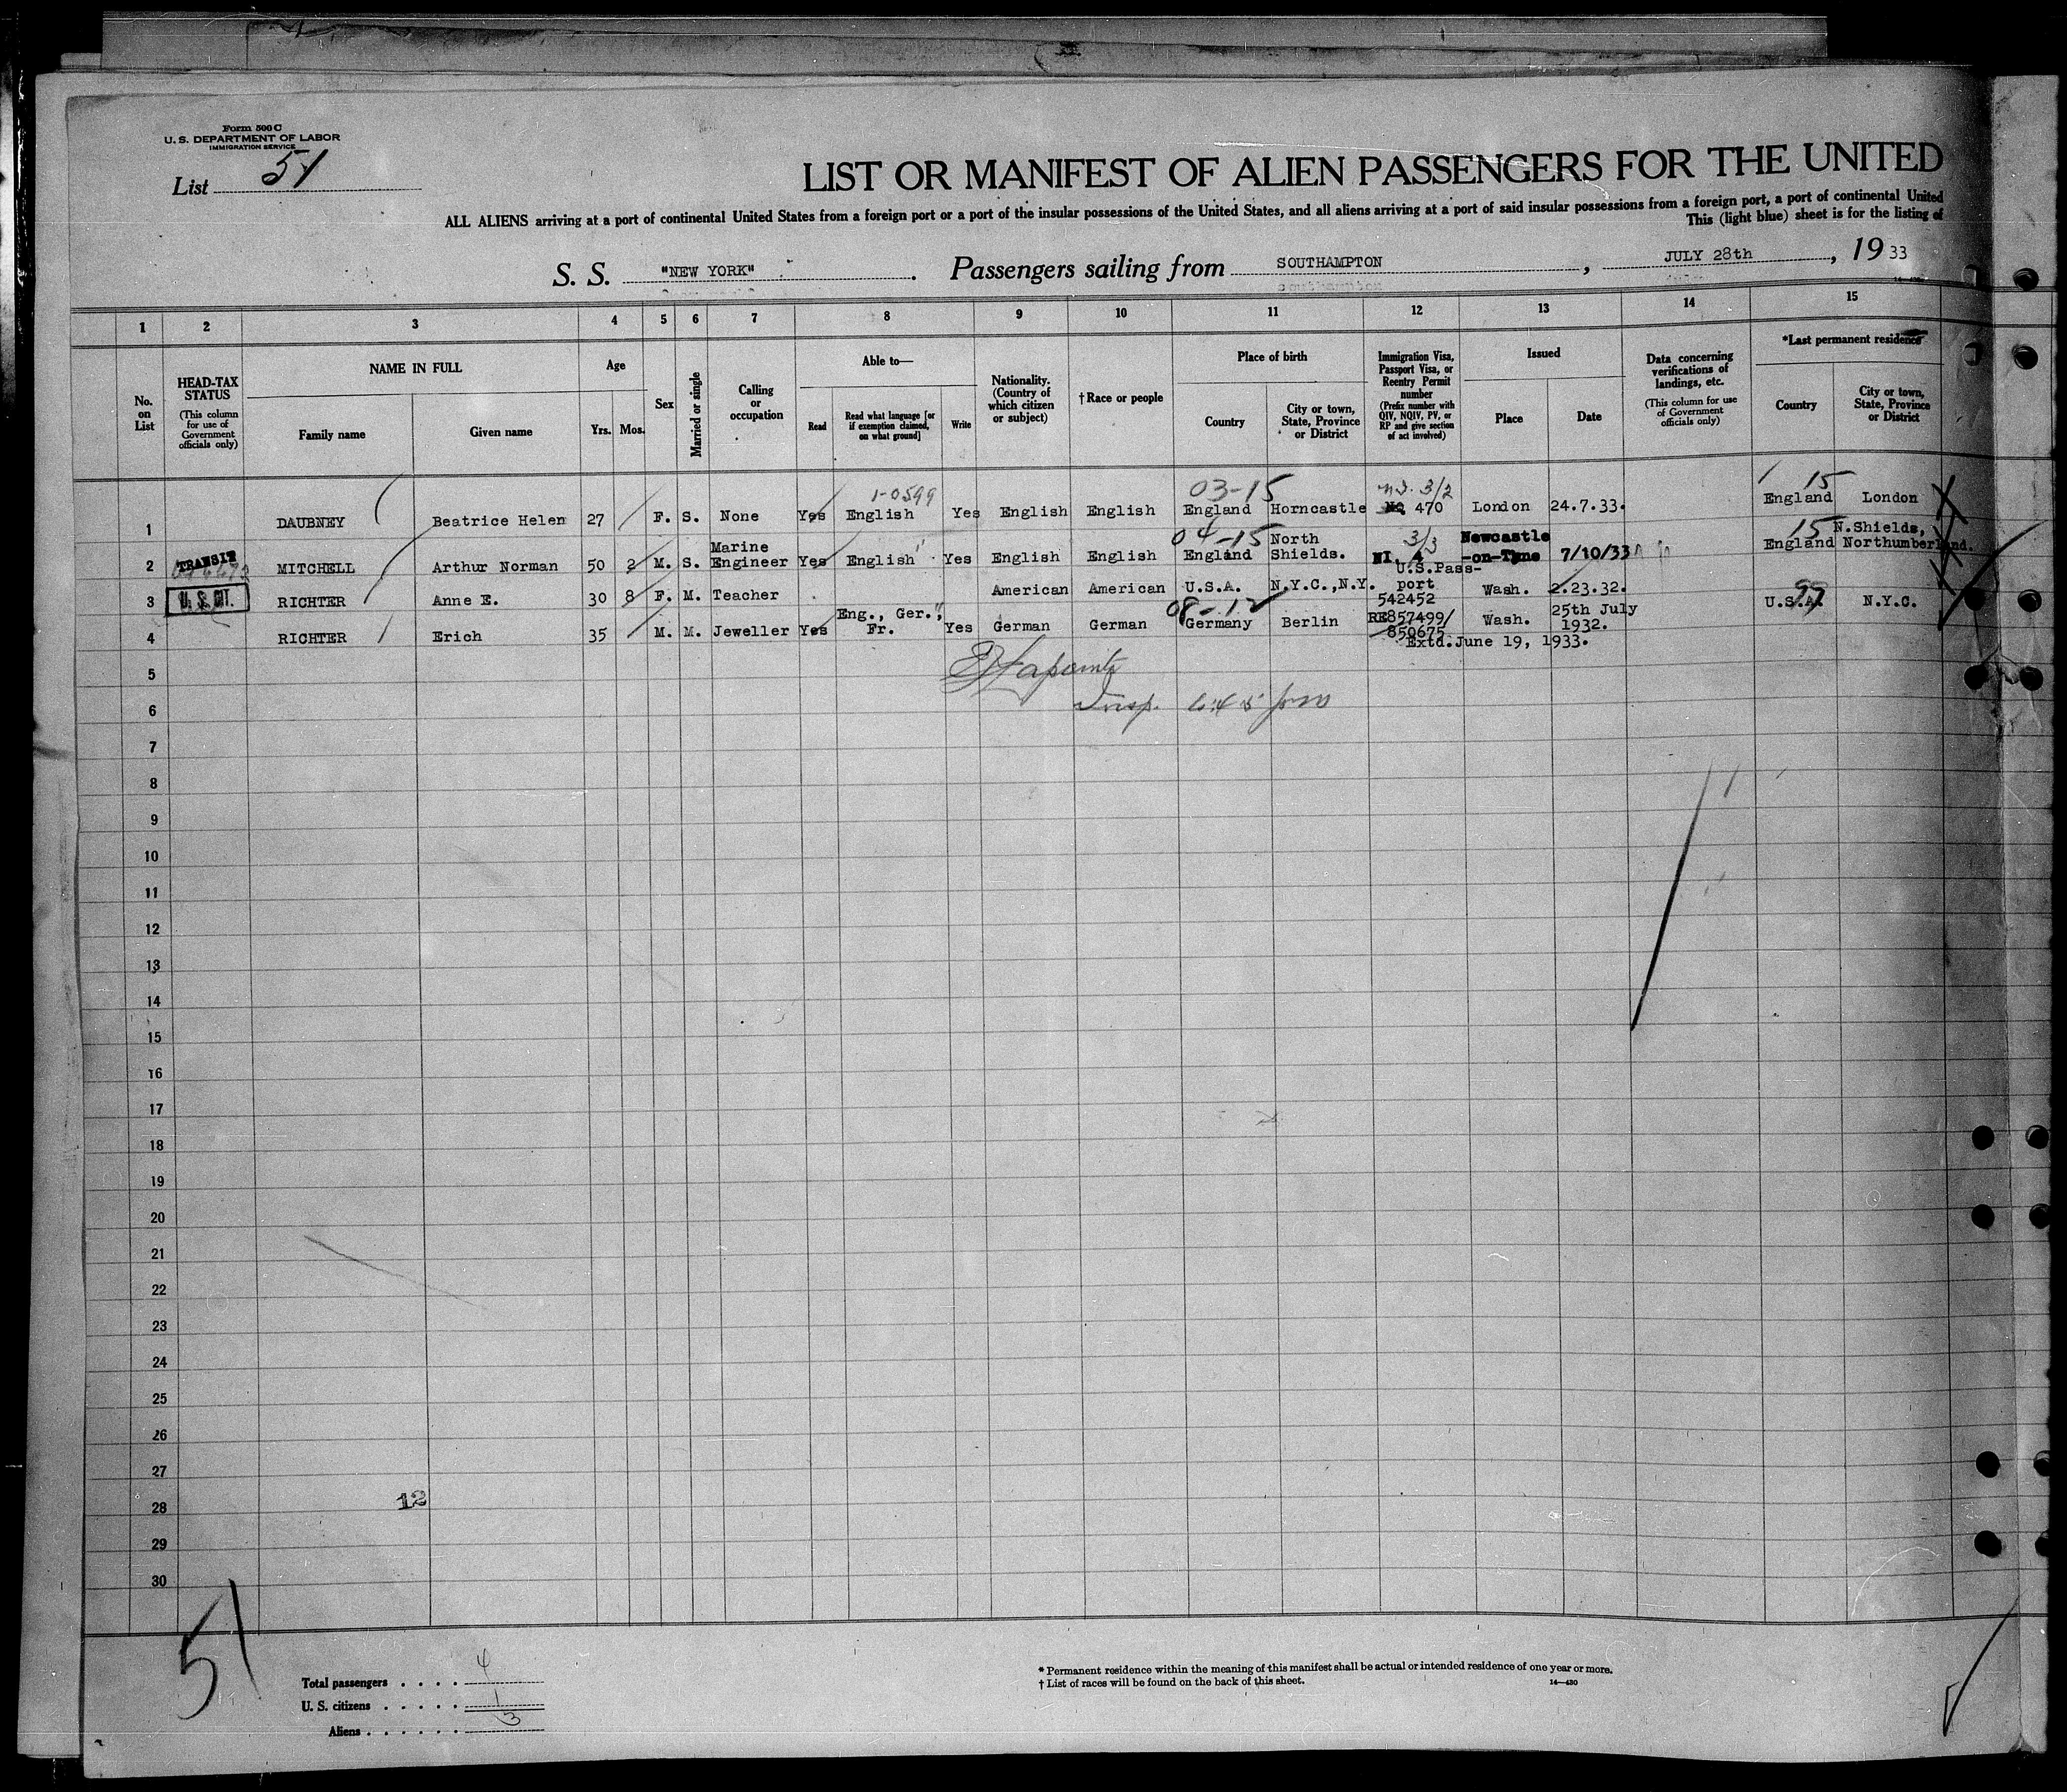 Form 500 C
U. S. DEPARTMENT OF LABOR
IMMIGRATION SERVICE
List 51
LIST OR MANIFEST OF ALIEN PASSENGERS FOR THE UNITED
ALL ALIENS arriving at a port of continental United States from a foreign port or a port of the insular possessions of the United States, and all aliens arriving at a port of said insular possessions from a foreign port, a port of continental United
This (light blue) sheet is for the listing of
S. S. "NEW YORK" . Passengers sailing from SOUTHAMPTON , JULY 28th , 19 33
1 2 3 4 5 6 7 8 9 10 11 12 13 14 15
No. on List
HEAD-TAX STATUS
(This column for use of Government officials only)
NAME IN FULL
Family name
Given name
Age
Yrs. Mos.
Sex
Married or single
Calling or occupation
Able to—
Read
Read what language [or if exemption claimed, on what ground]
Write
Nationality. (Country of which citizen or subject)
†Race or people
Place of birth
Country
City or town, State, Province or District
Immigration Visa, Passport Visa, or Reentry Permit number
(Prefix number with QIV, NQIV, PV, or RP and give section of act involved)
Issued
Place
Date
Data concerning verifications of landings, etc.
(This column for use of Government officials only)
*Last permanent residence
Country
City or town, State, Province or District
1-0599 03-15 3/2 15
1 DAUBNEY Beatrice Helen 27 F. S. None Yes English Yes English English England Horncastle 470 London 24.7.33. England London
04-15 3/3 15
2 TRANSIT MITCHELL Arthur Norman 50 2 M. S. Marine Engineer Yes English Yes English English England North Shields. NI. 4 Newcastle -on-Tyne 7/10/33 England N.Shields, Northumberland.
3 U. S. CIT. RICHTER Anne E. 30 8 F. M. Teacher American American U.S.A. N.Y.C.,N.Y. U.S.Pass-port 542452 Wash. 2.23.32. U.S.A. 99 N.Y.C.
08-12
4 RICHTER Erich 35 M. M. Jeweller Yes Eng., Ger., Fr. Yes German German Germany Berlin RE857499/ 850675 Wash. 25th July 1932.
Extd.June 19, 1933.
5
Insp. 6:45 pm
6
7
8
9
10
11
12
13
14
15
16
17
18
19
20
21
22
23
24
25
26
27
28 12
29
30
51
Total passengers . . . . 4
U. S. citizens . . . . . 1
Aliens . . . . . . 3
* Permanent residence within the meaning of this manifest shall be actual or intended residence of one year or more.
† List of races will be found on the back of this sheet.
14—430